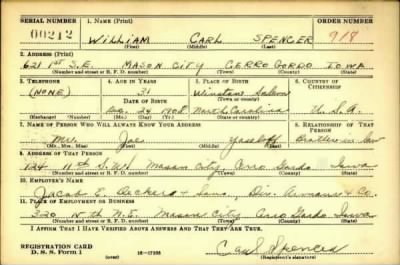 SERIAL NUMBER 1. NAME (Print) ORDER NUMBER
00212 WILLIAM CARL SPENCER 918
(First) (Middle) (Last)
2. ADDRESS (Print)
621 1ST S.E. MASON CITY CERRO GORDO IOWA
(Number and street or R. F. D. number) (Town) (County) (State)
3. TELEPHONE 4. AGE IN YEARS 5. PLACE OF BIRTH 6. COUNTRY OF CITIZENSHIP
(NONE) 31 Winston Salem
DATE OF BIRTH (Town or county)
24 1908 North Carolina U.S.A.
(Exchange) (Number) (Mo.) (Day) (Yr.) (State or country)
7. NAME OF PERSON WHO WILL ALWAYS KNOW YOUR ADDRESS 8. RELATIONSHIP OF THAT PERSON
Mr. Joe Brother in law
(Mr., Mrs., Miss) (First) (Middle) (Last)
9. ADDRESS OF THAT PERSON
124 th S.W. Mason City, Cerro Gordo Iowa
(Number and street or R. F. D. number) (Town) (County) (State)
10. EMPLOYER'S NAME
Jacob E. Decker & Sons, Div. Armour & Co.
11. PLACE OF EMPLOYMENT OR BUSINESS
N.E. Mason City Cerro Gordo Iowa
(Number and street or R. F. D. number) (Town) (County) (State)
I AFFIRM THAT I HAVE VERIFIED ABOVE ANSWERS AND THAT THEY ARE TRUE.
REGISTRATION CARD
D. S. S. Form 1 (over) Carl Spencer
(Registrant's signature)